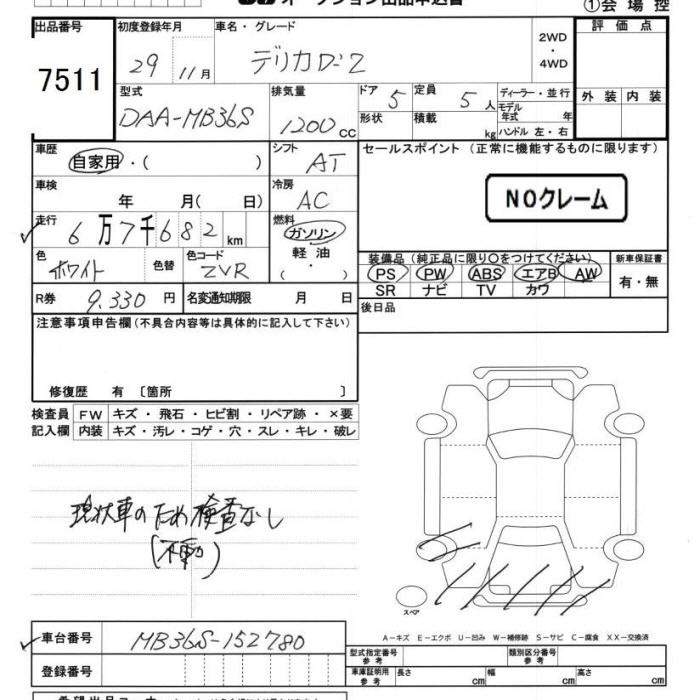 オークション出品申込書
①会場控
出品番号
7511
初度登録年月
29 11月
車名・グレード
デリカD:2
2WD
・
4WD
評価点
外装 内装
型式
DAA-MB36S
排気量
1200cc
ドア 5
定員 5人
形状
積載 kg
ディーラー・並行
モデル年式 年
ハンドル 左・右
車歴
自家用・( )
シフト
AT
セールスポイント (正常に機能するものに限ります)
NOクレーム
車検
年 月( 日)
冷房
AC
走行
6万7千682km
燃料
ガソリン
軽油
( ・ )
色
ホワイト
色替
色コード
ZVR
装備品 (純正品に限り○をつけてください)
PS PW ABS エアB AW
SR ナビ TV カワ
新車保証書
有・無
R券 9,330円
名変通知期限 月 日
後日品
注意事項申告欄 (不具合内容等は具体的に記入して下さい)
修復歴 有〔箇所 〕
検査員記入欄
FW キズ・飛石・ヒビ割・リペア跡・×要
内装 キズ・汚レ・コゲ・穴・スレ・キレ・破レ
現状車のため検査なし
(不動)
スペア
A-キズ E-エクボ U-凹み W-補修跡 S-サビ C-腐食 XX-交換済
車台番号 MB36S-152780
登録番号
型式指定番号 参考
類別区分番号 参考
車庫証明用 参考
長さ cm 幅 cm 高さ cm